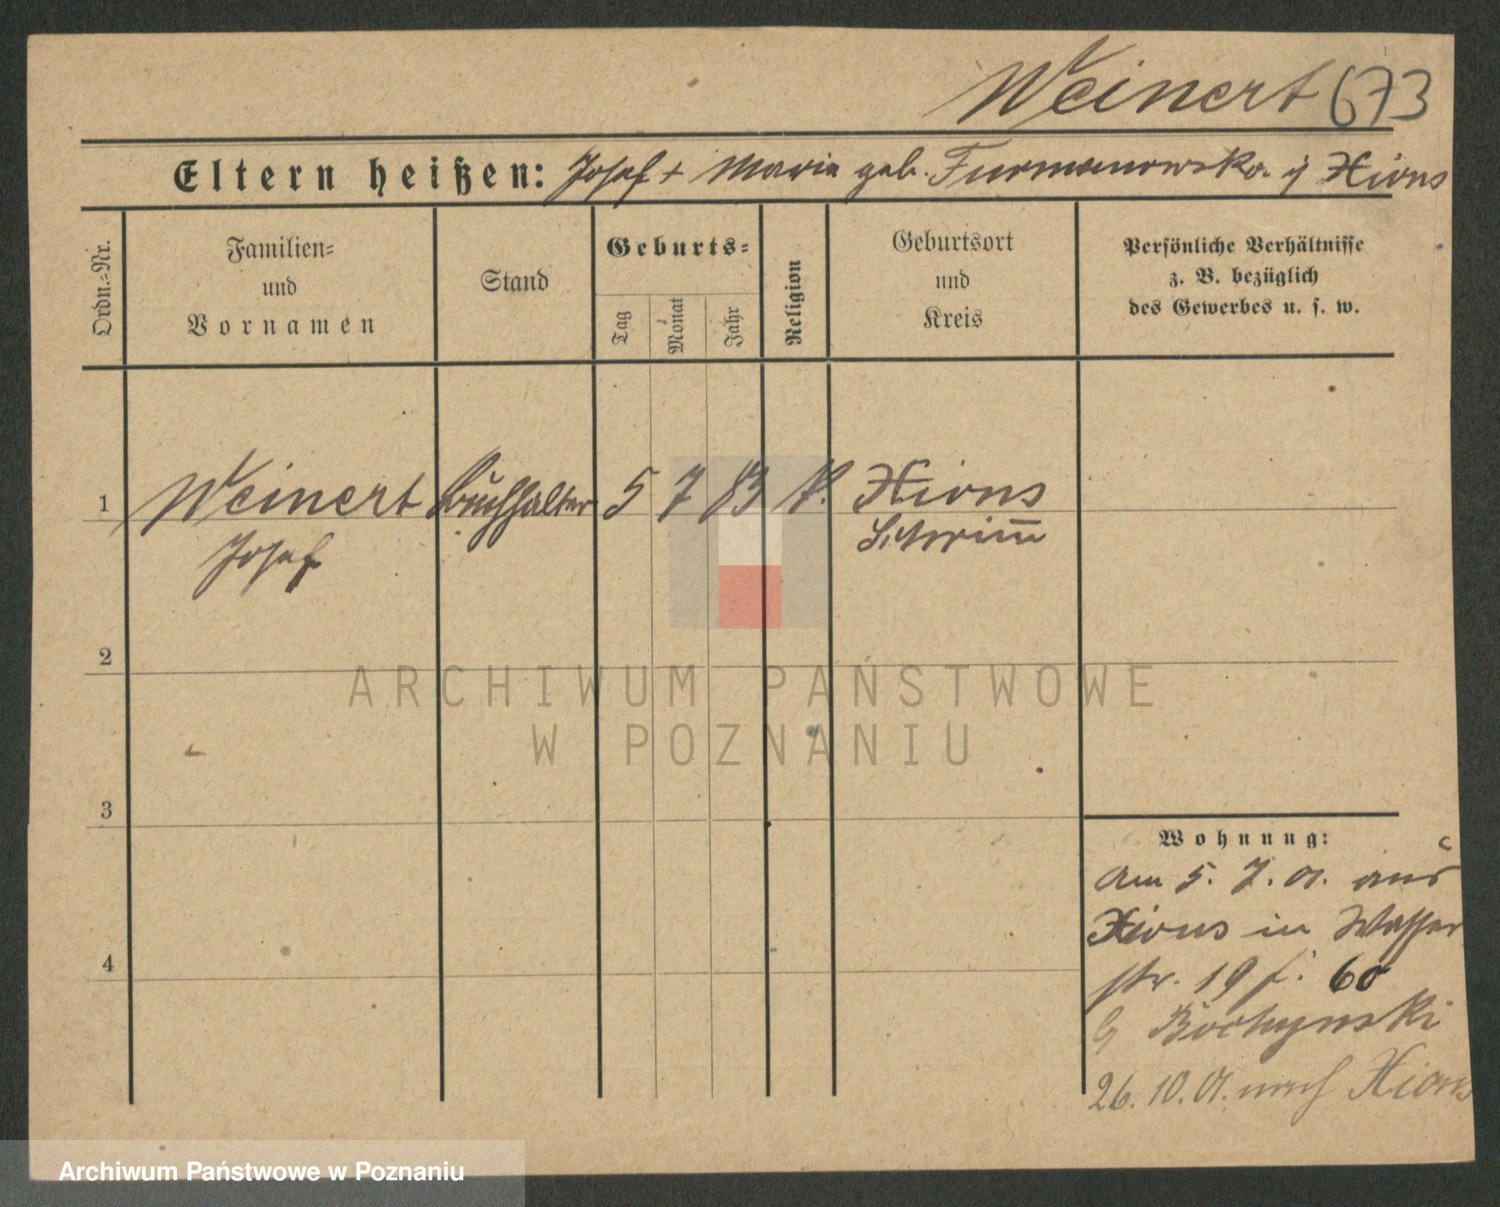 Weinert 673
Eltern heißen: Josef + Maria geb. Furmanowska j Xions
Ordn.-Nr.
Familien-
und
Vornamen
Stand
Geburts-
Tag
Monat
Jahr
Religion
Geburtsort
und
Kreis
Persönliche Verhältnisse
z. B. bezüglich
des Gewerbes u. s. w.
1 Weinert Buchhalter 5 7 83 k. Xions
Josef Schrimm
2
3
4
ARCHIWUM PAŃSTWOWE
W POZNANIU
Wohnung:
Am 5. 7. 01. aus
Xions in Wasser
str. 19 f. 60
b Bochynski
26. 10. 01. nach Xions
Archiwum Państwowe w Poznaniu